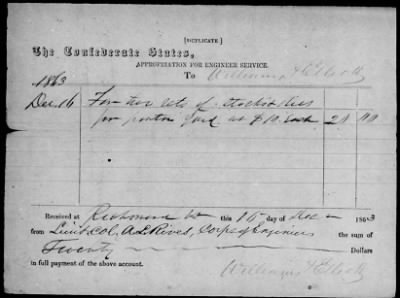 (DUPLICATE.)
The Confederate States,
APPROPRIATION FOR ENGINEER SERVICE.
To Williams & Elliott
1863
Dec 16 For two sets of
for yard at $10 Each 20 00
Received at Richmond Va this 16 day of Dec 1863
from Lieut Col. A L Rives, Corps of Engineers the sum of
Twenty Dollars
in full payment of the above account.
Williams & Elliott